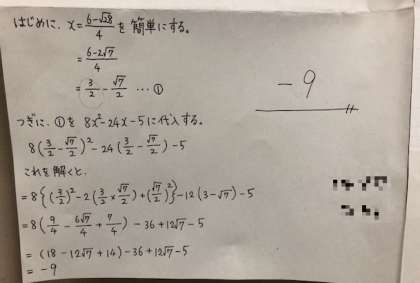 はじめに、x=(6-√28)/4 を簡単にする。
=(6-2√7)/4
=3/2-√7/2 …①
-9
つぎに、①を 8x²-24x-5に代入する。
8(3/2-√7/2)²-24(3/2-√7/2)-5
これを解くと、
=8{(3/2)²-2(3/2×√7/2)+(√7/2)²}-12(3-√7)-5
=8(9/4-6√7/4+7/4)-36+12√7-5
=(18-12√7+14)-36+12√7-5
=-9